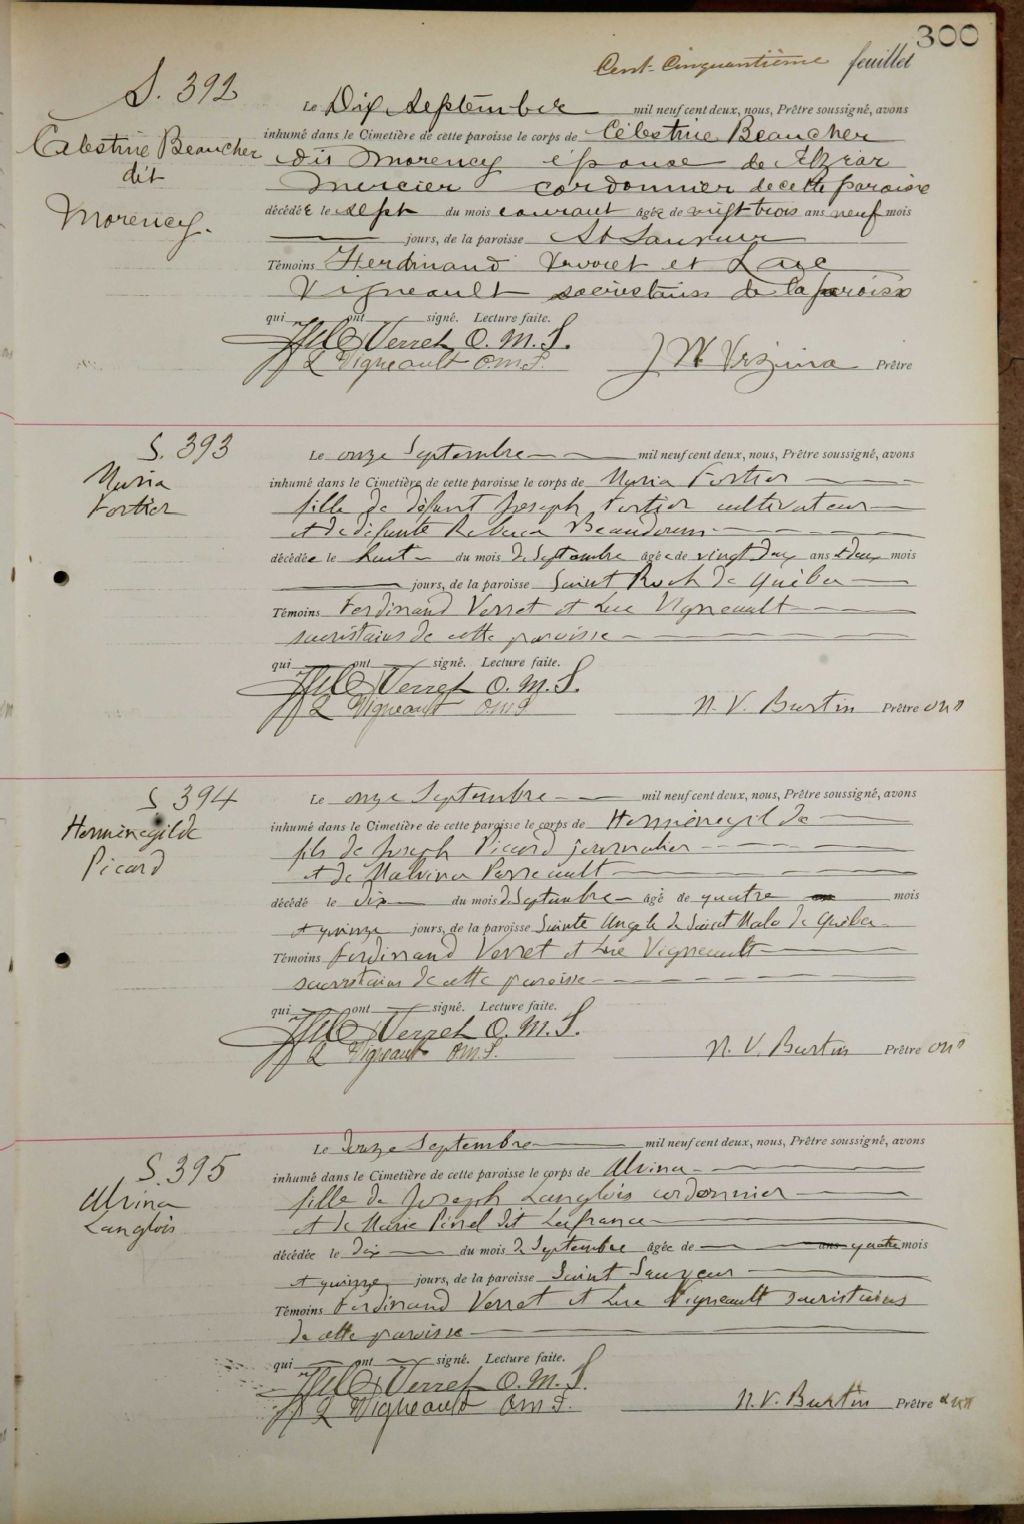 300
Cent-Cinquantième feuillet
S. 392
Celestine Beaucher
dit
Morency.
Le Dix Septembre mil neuf cent deux, nous, Prêtre soussigné, avons
inhumé dans le Cimetière de cette paroisse le corps de Célestine Beaucher
dit Morency épouse de Elzéar
Mercier cordonnier de cette paroisse
décédée le sept du mois courant âgée de vingt trois ans neuf mois
jours, de la paroisse St Sauveur
Témoins Ferdinand Verret et Luc
Vigneault sacristains de la paroisse
qui ont signé. Lecture faite.
Verret O. M. I.
L Vigneault O.M.I.
J W Vézina Prêtre
S. 393
Maria
Fortier
Le onze Septembre mil neuf cent deux, nous, Prêtre soussigné, avons
inhumé dans le Cimetière de cette paroisse le corps de Maria Fortier
fille de défunt Joseph Fortier cultivateur
et de défunte Rebecca Beaudoin
décédée le huit du mois de Septembre âgée de vingt deux ans et deux mois
jours, de la paroisse Saint Roch de Québec
Témoins Ferdinand Verret et Luc Vigneault
sacristains de cette paroisse
qui ont signé. Lecture faite.
Verret O. M. I.
L Vigneault O.M.I
N. V. Burtin Prêtre omi
S 394
Herménégilde
Picard
Le onze Septembre mil neuf cent deux, nous, Prêtre soussigné, avons
inhumé dans le Cimetière de cette paroisse le corps de Herménégilde
fils de Joseph Picard journalier
et de Malvina Perreault
décédé le dix du mois de Septembre âgé de quatre mois
et quinze jours, de la paroisse Sainte Angèle de Saint Malo de Québec
Témoins Ferdinand Verret et Luc Vigneault
sacristains de cette paroisse
qui ont signé. Lecture faite.
Verret O. M. I.
L Vigneault O.M.I.
N. V. Burtin Prêtre omi
S. 395
Alvina
Langlois
Le douze Septembre mil neuf cent deux, nous, Prêtre soussigné, avons
inhumé dans le Cimetière de cette paroisse le corps de Alvina
fille de Joseph Langlois cordonnier
et de Marie Pinel dit Lafrance
décédée le dix du mois de Septembre âgée de ans quatre mois
et quinze jours, de la paroisse Saint Sauveur
Témoins Ferdinand Verret et Luc Vigneault sacristains
de cette paroisse
qui ont signé. Lecture faite.
Verret O. M. I.
L Vigneault O.M.I.
N. V. Burtin Prêtre omi